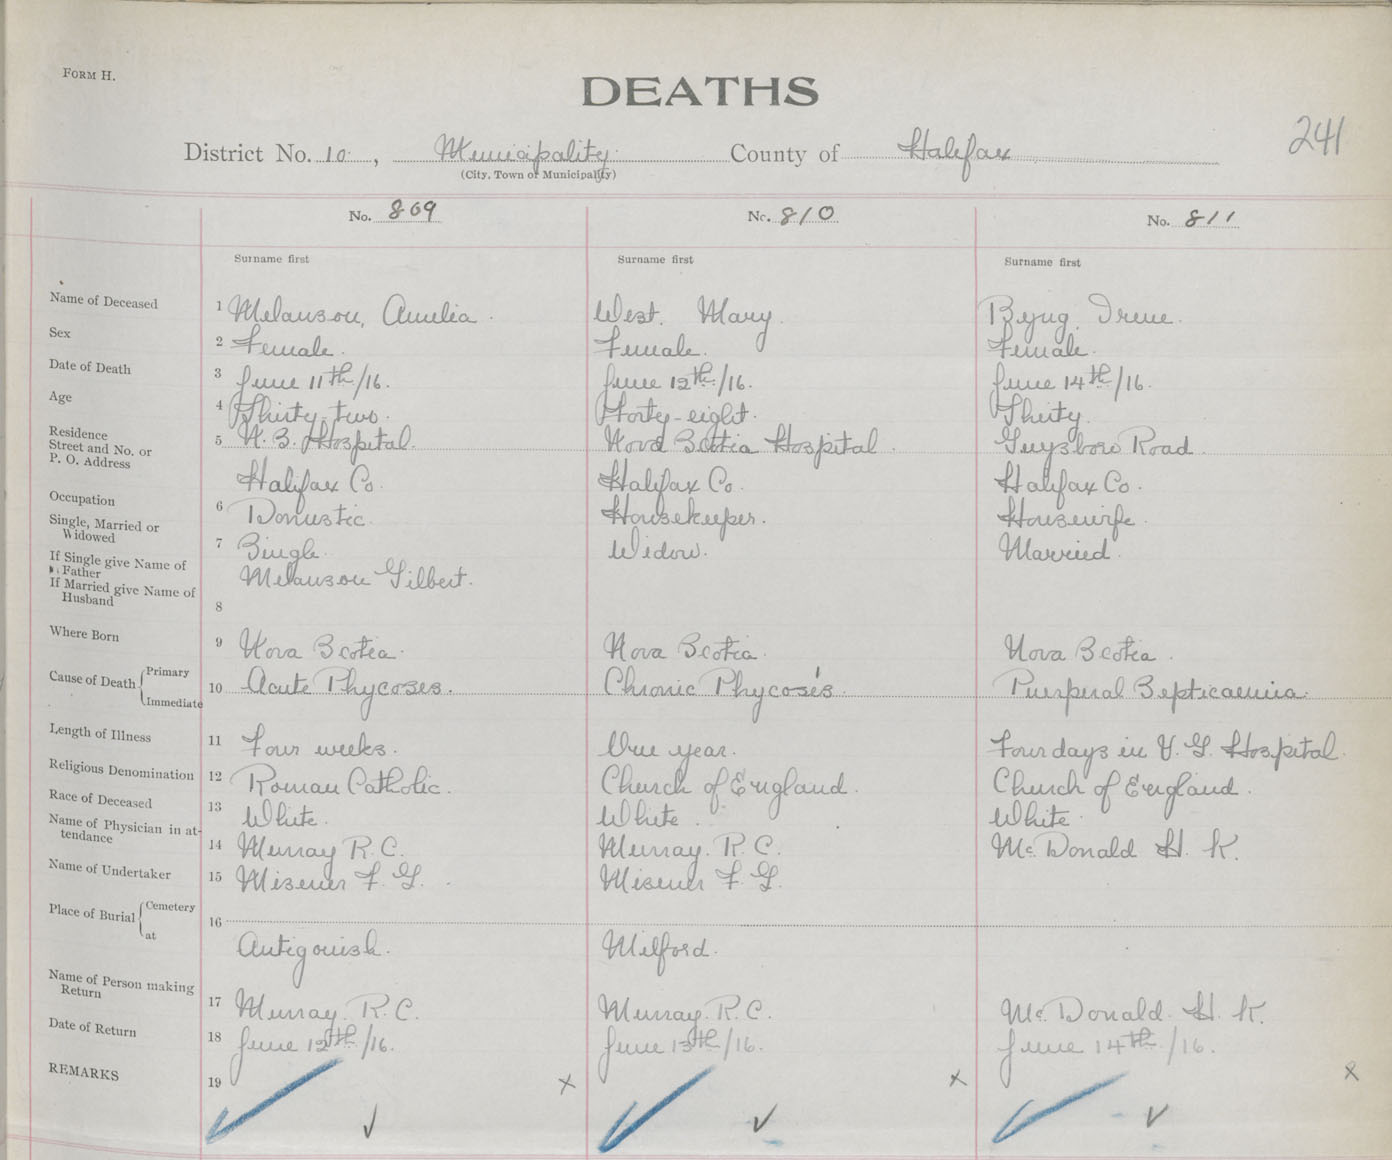 FORM H.
DEATHS
241
District No. 10, Municipality County of Halifax
(City, Town or Municipality)
No. 809 No. 810 No. 811
Surname first Surname first Surname first
Name of Deceased 1 Melanson, Amelia. West, Mary. Irene.
Sex 2 Female. Female. Female.
Date of Death 3 June 11th/16. June 12th/16. June 14th/16.
Age 4 Thirty-two. Forty-eight. Thirty.
Residence Street and No. or P. O. Address 5 N. S. Hospital. Nova Scotia Hospital. Guysboro Road.
Halifax Co. Halifax Co. Halifax Co.
Occupation 6 Domestic. Housekeeper. Housewife.
Single, Married or Widowed 7 Single. Widow. Married.
If Single give Name of Father Melanson Gilbert.
If Married give Name of Husband 8
Where Born 9 Nova Scotia. Nova Scotia. Nova Scotia.
Cause of Death Primary Immediate 10 Acute Phycoses. Chronic Phycosis. Puerperal Septicaemia.
Length of Illness 11 Four weeks. One year. Four days in V. G. Hospital.
Religious Denomination 12 Roman Catholic. Church of England. Church of England.
Race of Deceased 13 White. White. White.
Name of Physician in attendance 14 Murray R. C. Murray. R. C. McDonald H. K.
Name of Undertaker 15 Misener F. G. Misener F. G.
Place of Burial Cemetery at 16
Antigonish. Milford.
Name of Person making Return 17 Murray. R. C. Murray. R. C. McDonald. H. K.
Date of Return 18 June 12th/16. June 13th/16. June 14th/16.
REMARKS 19 x x x